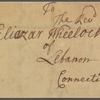 To
The Rev
Eliezar Wheelock
of
Lebanon
Connecti